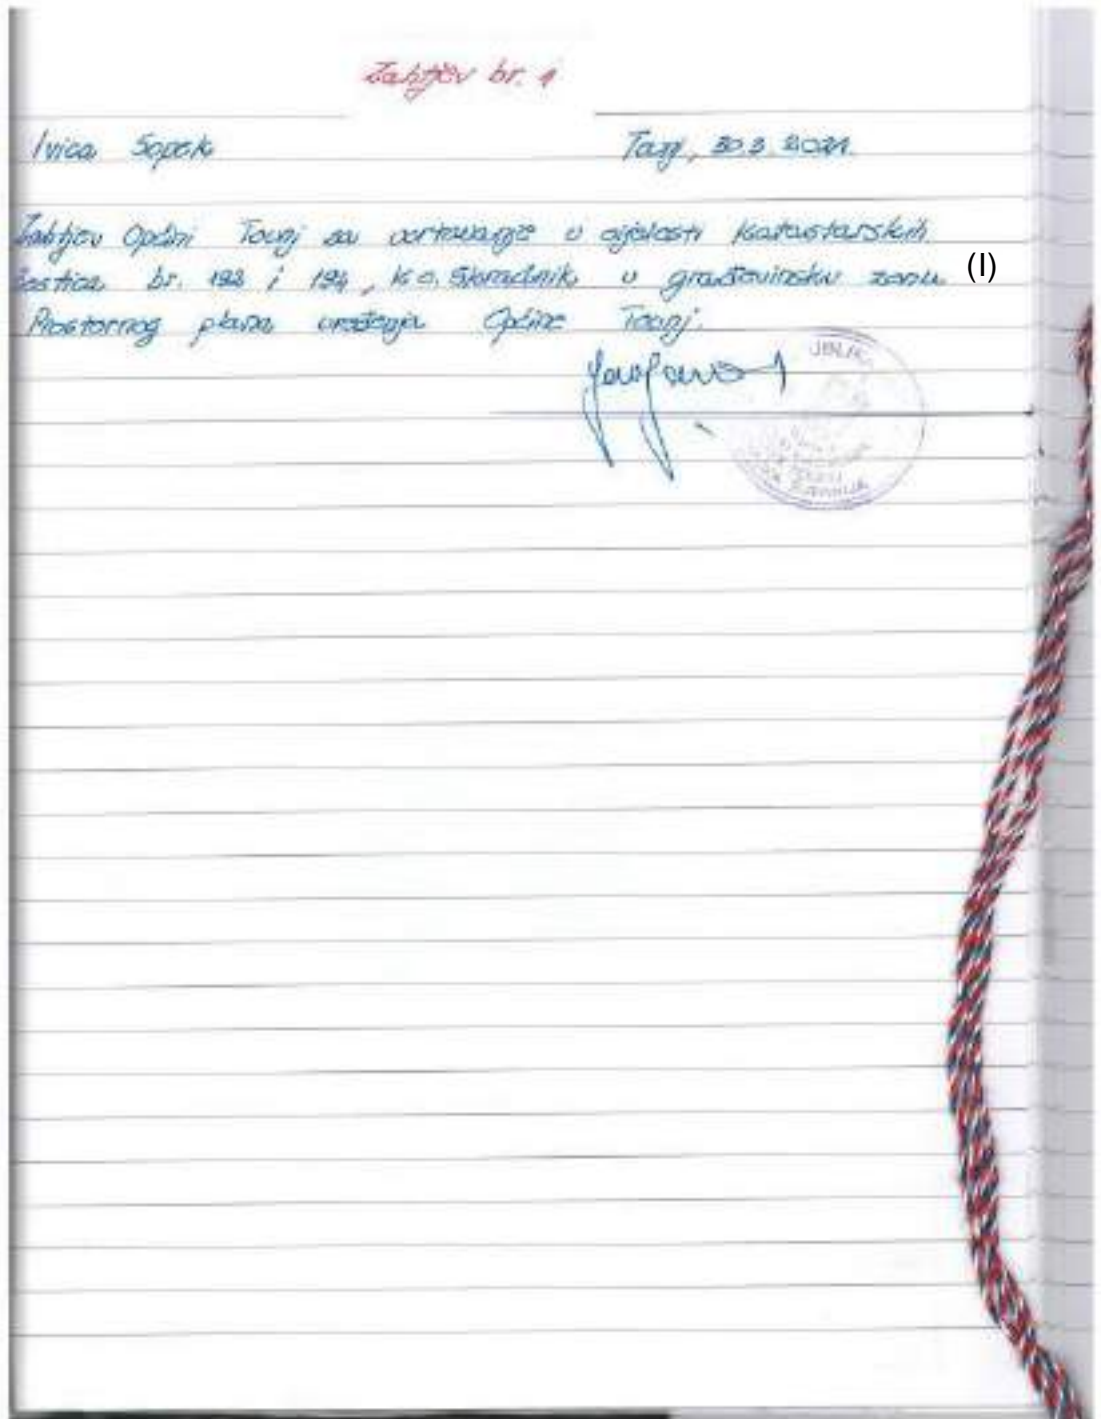 Zahtjev br. 1
Ivica Sopek Tounj, 30.3.2021.
Zahtjev Općini Tounj za ucrtavanje u cijelosti katastarskih
čestica br. i 194, k.o. Skradnik u građevinsku zonu (I)
Prostornog plana uređenja Općine Tounj.